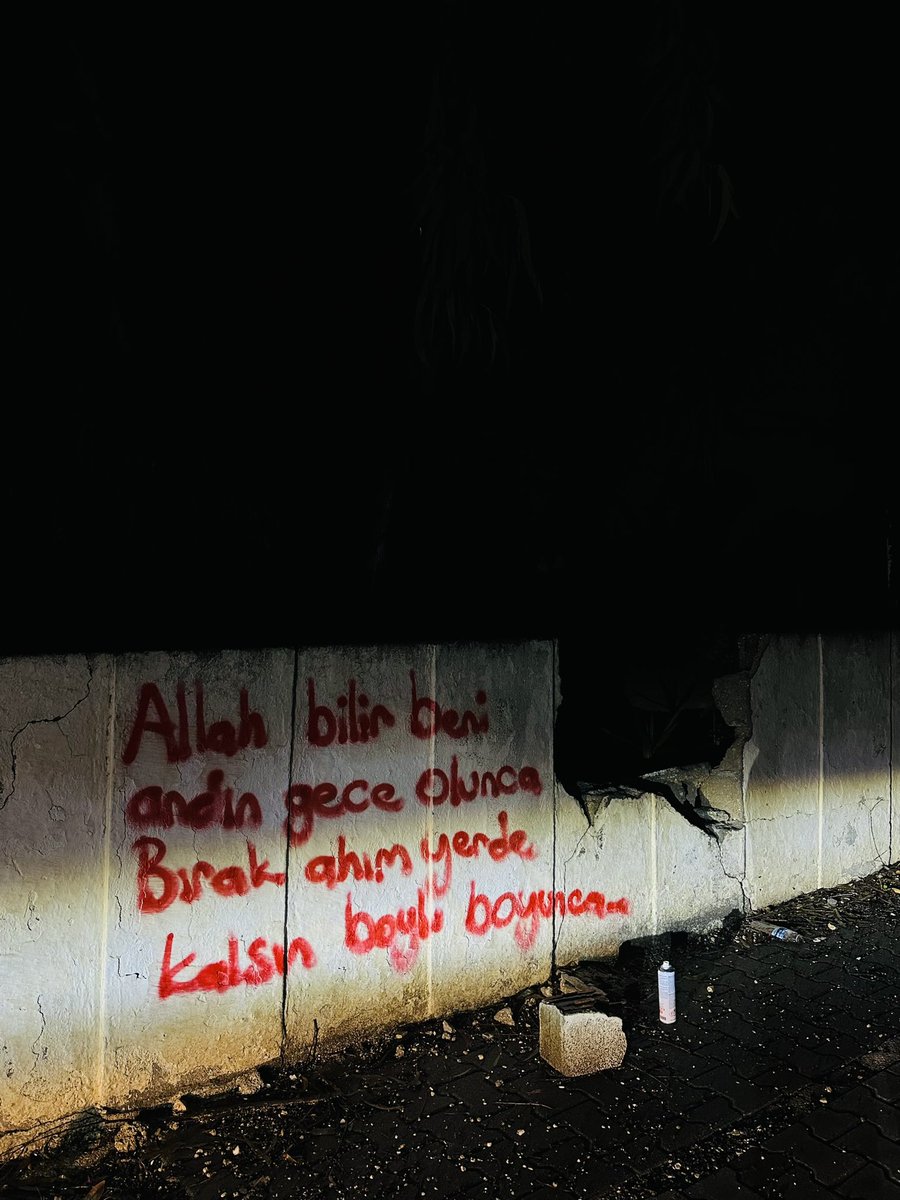 Allah bilir beni
andın gece olunca
Bırak ahım yerde
kalsın boylu boyunca...